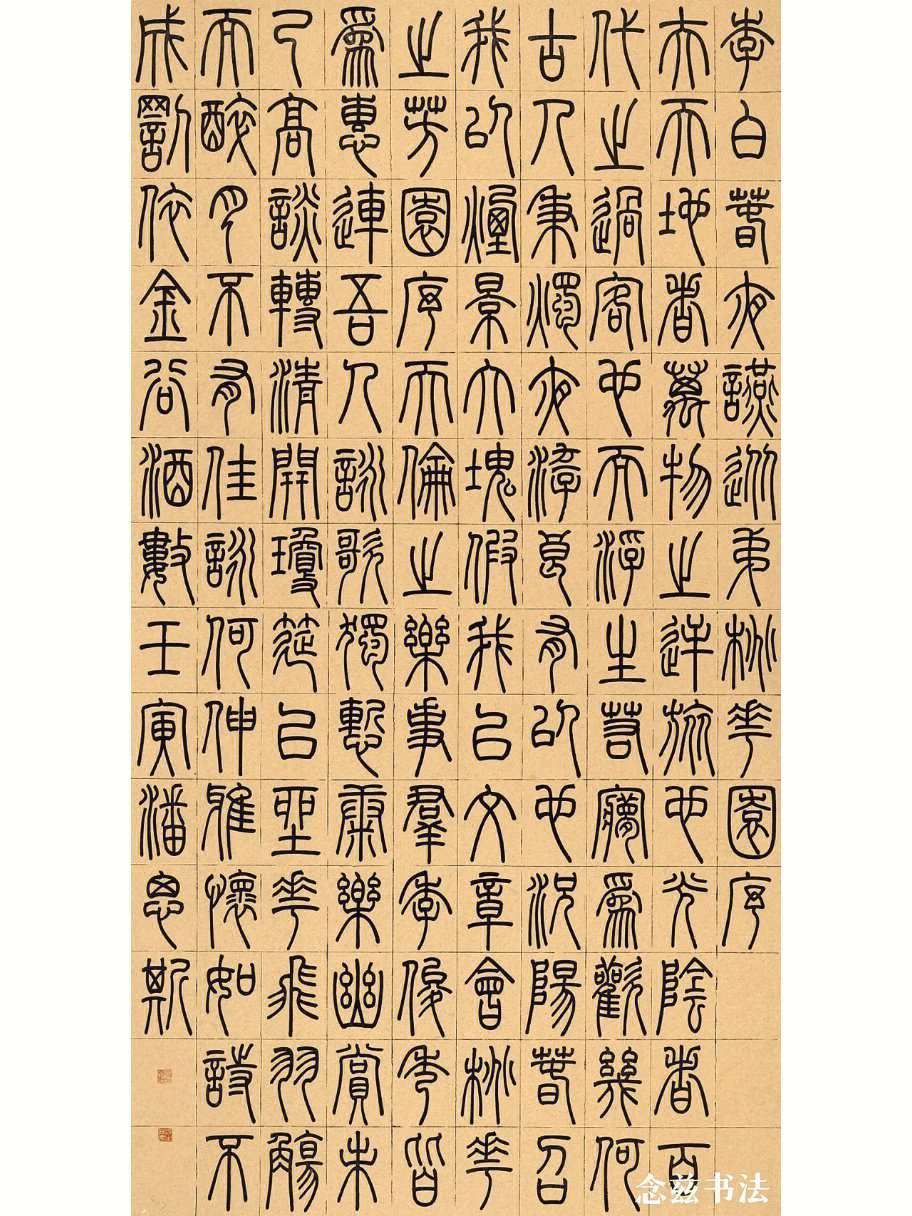 李白春夜讌從弟桃花園序
夫天地者萬物之逆旅也光陰者百
代之過客也而浮生若夢爲歡幾何
古人秉燭夜游良有以也況陽春召
我以煙景大塊假我以文章會桃花
之芳園序天倫之樂事羣季俊秀皆
爲惠連吾人詠歌獨慙康樂幽賞未
已高談轉清開瓊筵以坐花飛羽觴
而醉月不有佳詠何伸雅懷如詩不
成罰依金谷酒數壬寅潘思斯
念兹书法